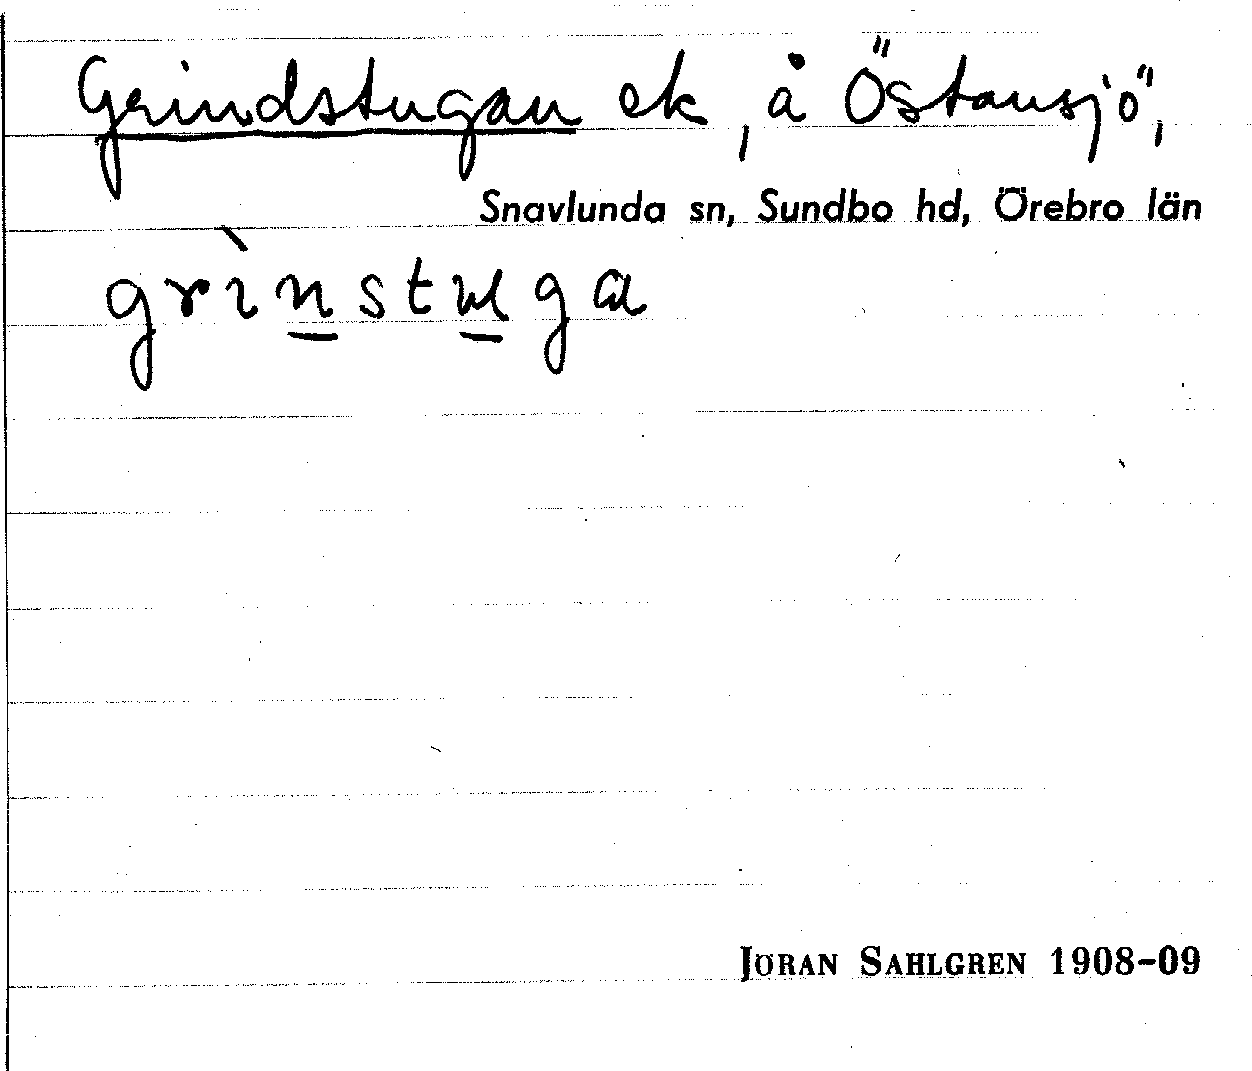 Grindstugan ek, å Östansjö,
Snavlunda sn, Sundbo hd, Örebro län
grìnstuga
JÖRAN SAHLGREN 1908-09